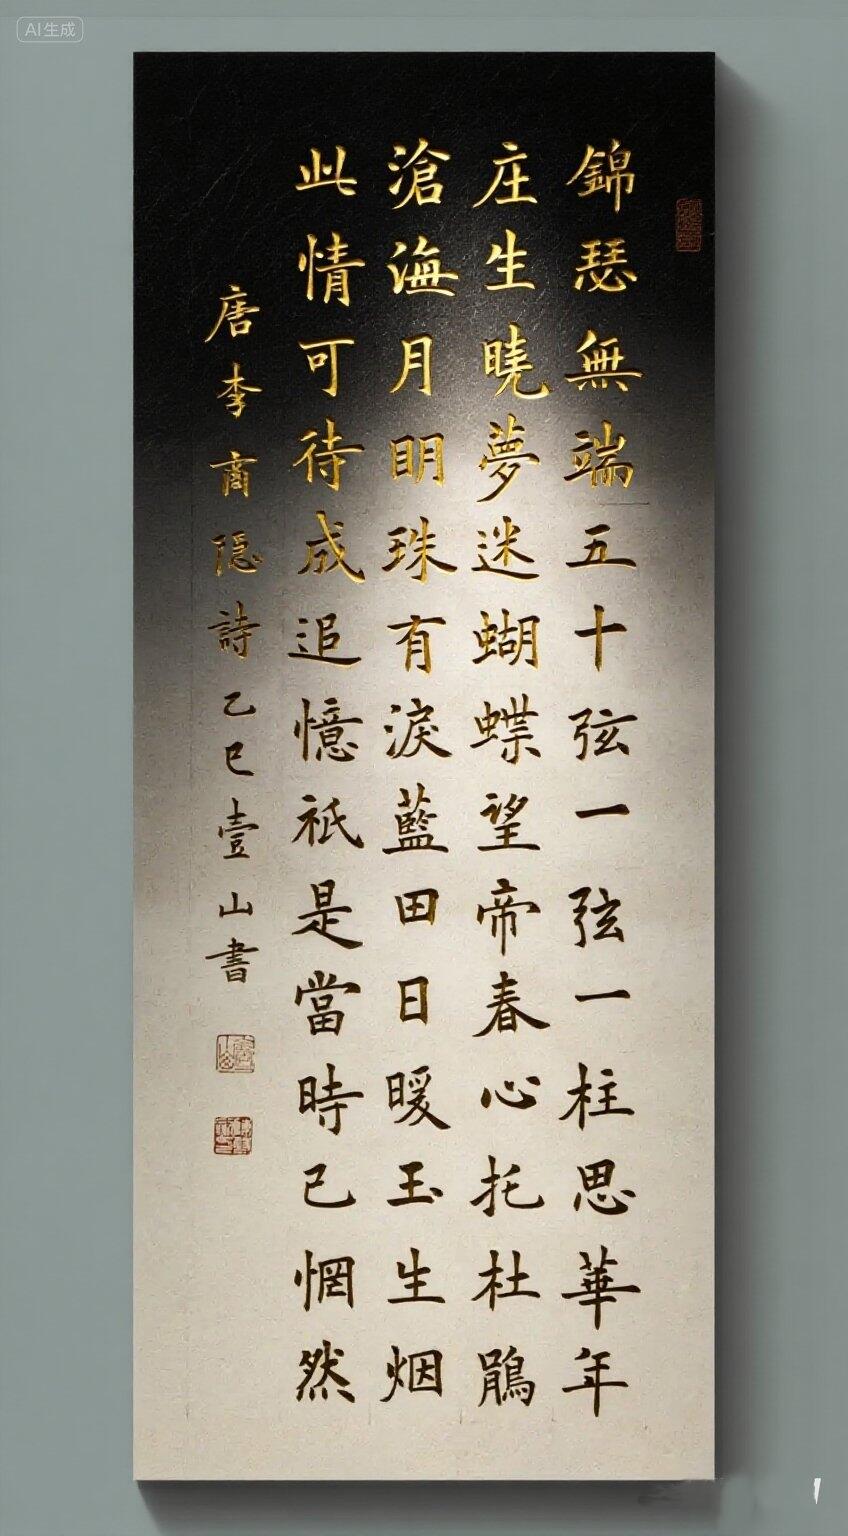 錦瑟無端五十弦一弦一柱思華年
庄生曉夢迷蝴蝶望帝春心托杜鵑
滄海月明珠有淚藍田日暖玉生烟
此情可待成追憶祇是當時已惘然
唐李商隐詩乙巳壹山書
AI生成